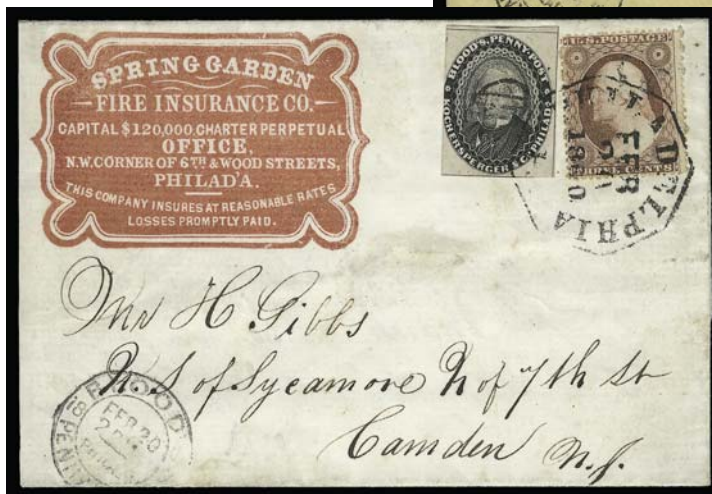 SPRING GARDEN
FIRE INSURANCE CO.
CAPITAL $120,000. CHARTER PERPETUAL
OFFICE,
N.W. CORNER OF 6TH & WOOD STREETS,
PHILAD'A.
THIS COMPANY INSURES AT REASONABLE RATES
LOSSES PROMPTLY PAID.
BLOOD'S PENNY POST
KOCHERSPERGER & CO. PHILADA
U.S. POSTAGE
CENTS
DELPHIA
FEB
21
1860
Mr H Gibbs
N S of Sycamore N of 7th St
Camden N.J.
BLOOD'S PENNY
FEB 20